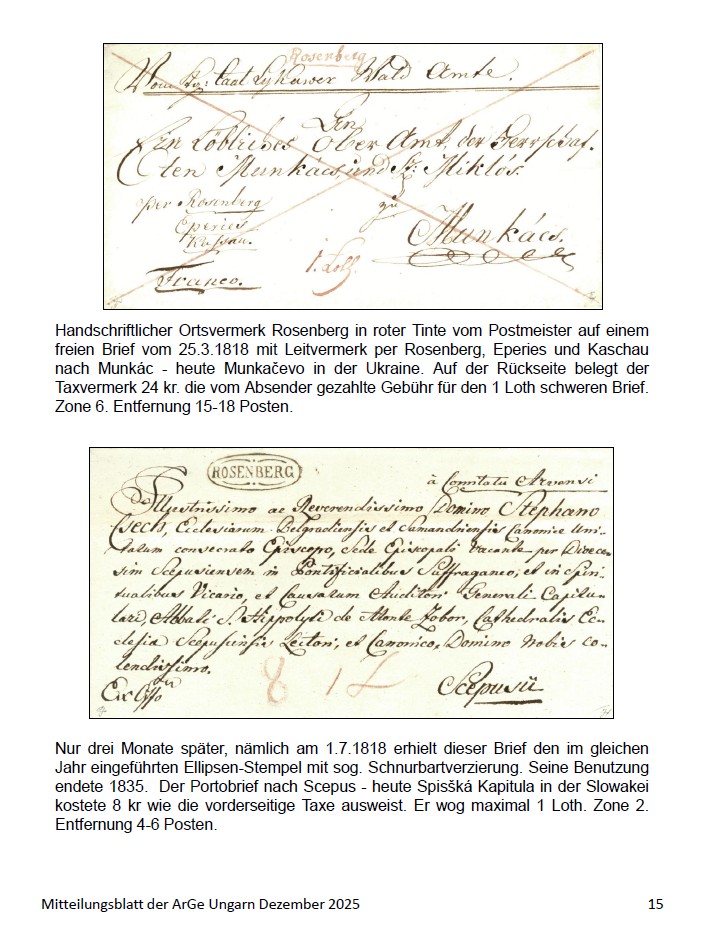 Rosenberg
Vom Kg: Caal Lykawer Wald Amte.
Den
Ein Löbliches Ober Amt, der Herrschaf-
ten Munkács, und St: Miklós.
per Rosenberg
zu
Eperies
Munkács.
Kassau.
1. Loth.
Franco.
Handschriftlicher Ortsvermerk Rosenberg in roter Tinte vom Postmeister auf einem
freien Brief vom 25.3.1818 mit Leitvermerk per Rosenberg, Eperies und Kaschau
nach Munkác - heute Munkačevo in der Ukraine. Auf der Rückseite belegt der
Taxvermerk 24 kr. die vom Absender gezahlte Gebühr für den 1 Loth schweren Brief.
Zone 6. Entfernung 15-18 Posten.
ROSENBERG
à Comitatu Arvensi
Illustrissimo ac Reverendissimo Domino Stephano
Csech, Ecclesiarum Belgradiensis et Samandriensis Canonice Uni-
tarum consecrato Episcopo, Sede Episcopali vacante per Dioece-
sim Scepusiensem in Pontificialibus Suffraganeo, et in Spiri-
tualibus Vicario, et Causarum Auditori Generali Capitu-
lari, Abbati S. Hippolyti de Monte Zobor, Cathedralis Ec-
clesia Scepusiensis Lectori, et Canonico, Domino Nobis co-
lendissimo.
Ex Offo
8 1 L
Scepusii
Nur drei Monate später, nämlich am 1.7.1818 erhielt dieser Brief den im gleichen
Jahr eingeführten Ellipsen-Stempel mit sog. Schnurbartverzierung. Seine Benutzung
endete 1835. Der Portobrief nach Scepus - heute Spisšká Kapitula in der Slowakei
kostete 8 kr wie die vorderseitige Taxe ausweist. Er wog maximal 1 Loth. Zone 2.
Entfernung 4-6 Posten.
Mitteilungsblatt der ArGe Ungarn Dezember 2025
15